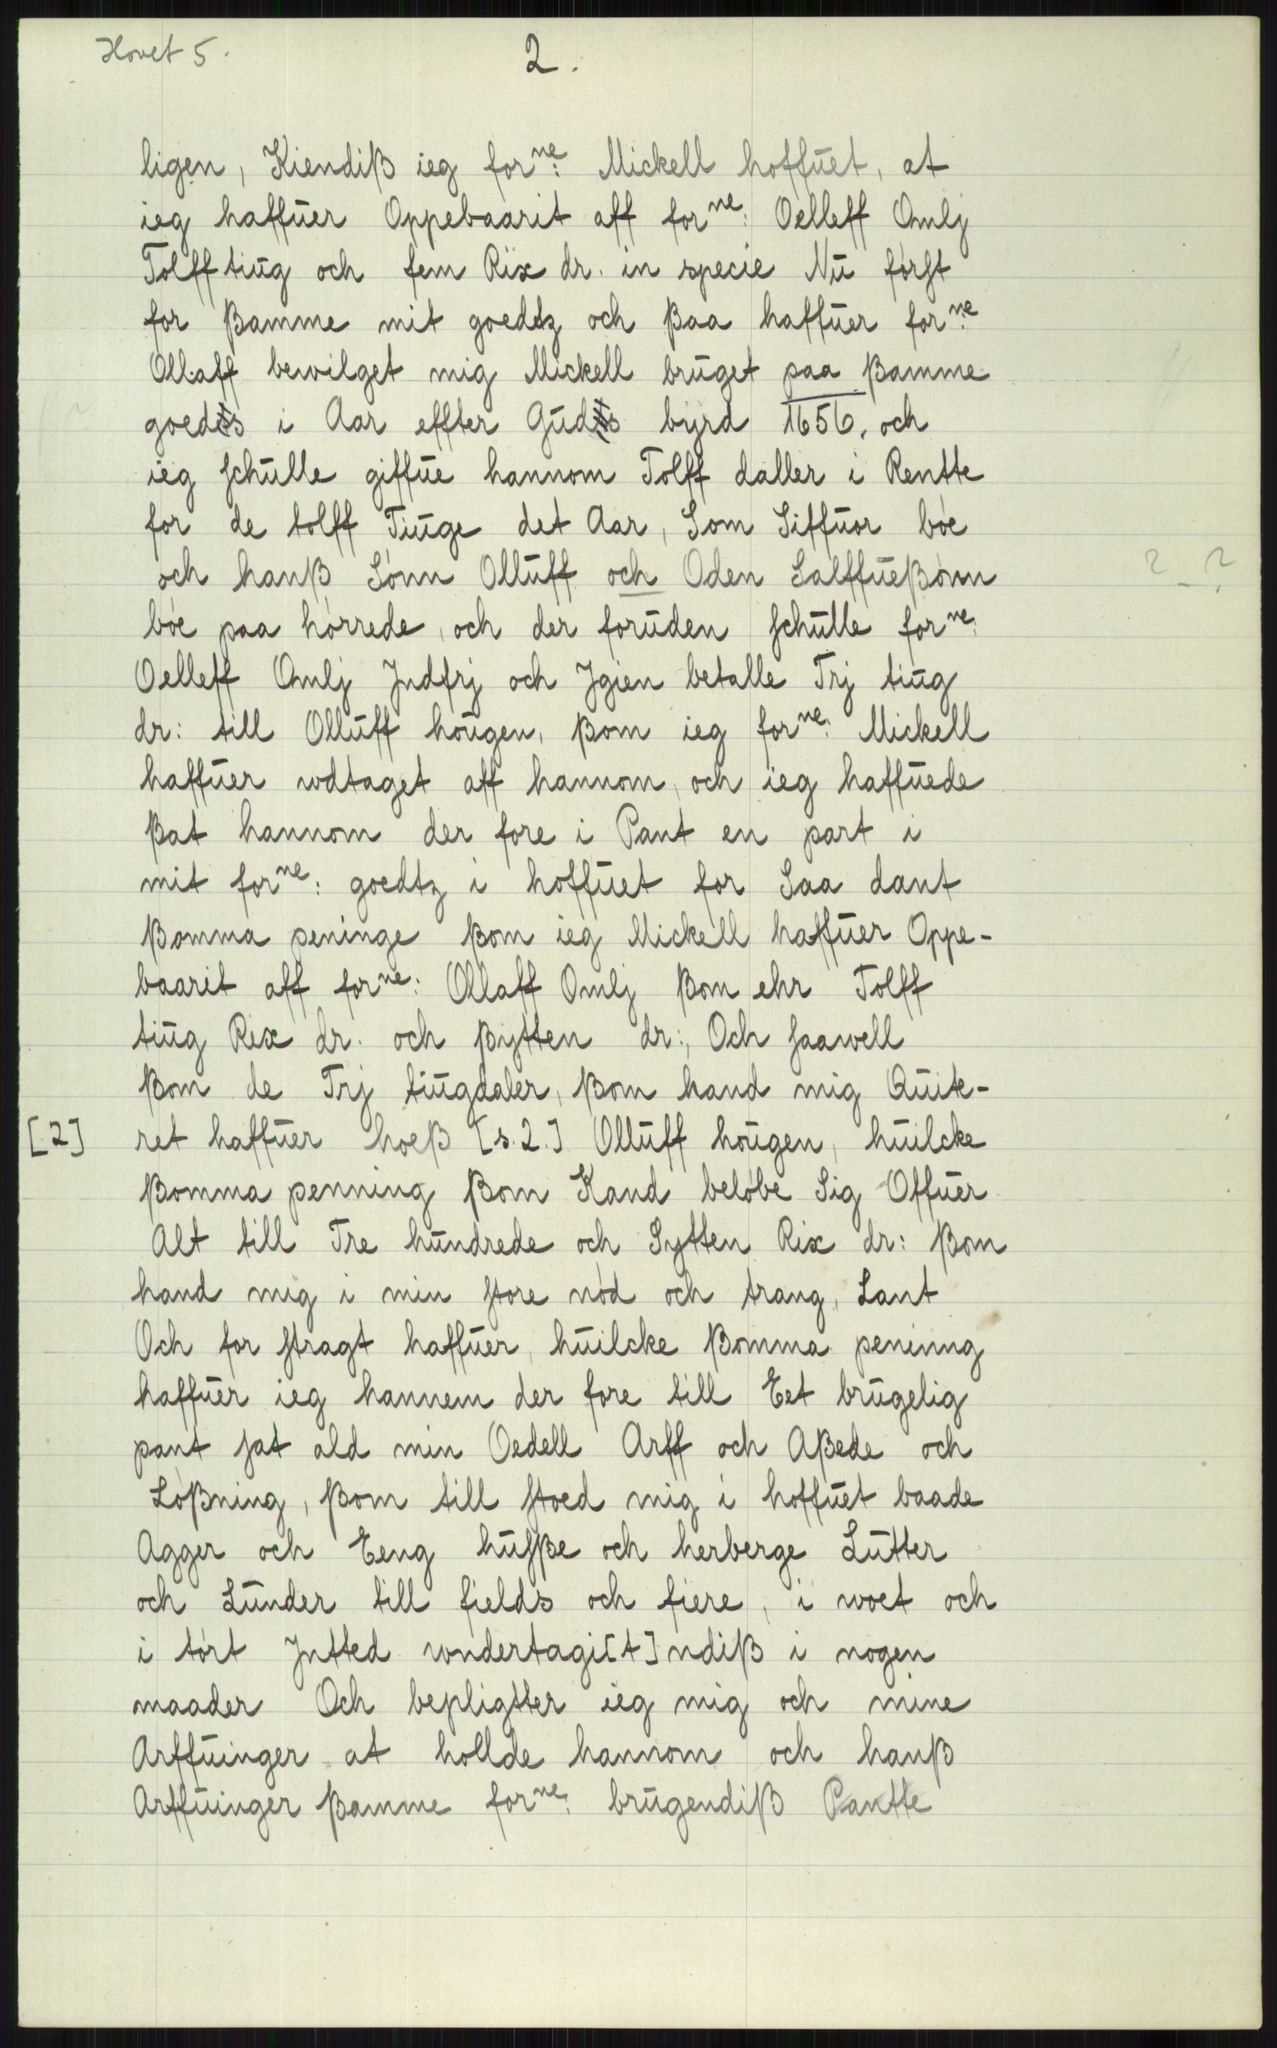 Hovet 5.
2.
ligen, Kiendiß ieg forne: Mickell hoffuet, at
ieg haffuer Oppebaarit aff forne: Oelleff Omlj
Tolff tiug och fem Rix dr. in specie Nu først
for ßamme mit goedtz och ßaa haffuer forne
Ollaff bewilget mig Mickell bruget paa ßamme
goeds i Aar effter Guds byrd 1656, och
ieg schulle giffue hannom Tolff daller i Rentte
for de tolff Tiuge det Aar, Som Siffuor boe
och hanß Sønn Olluff och Oden Salffueßønn
bøe paa hørrede, och der foruden schulle forne:
Oelleff Omlj Jndfrj och Jgien betalle Trj tiug
dr: till Olluff hougen, ßom ieg forne: Mickell
haffuer wdtaget aff hannom, och ieg haffuede
ßat hannom der fore i Pant en part i
mit forne: goedtz i hoffuet for Saa dant
ßomma peninge ßom ieg Mickell haffuer Oppe-
baarit aff forne: Ollaff Omlj ßom ehr Tolff
tiug Rix dr. och ßytten dr:, Och saawell
ßom de Trj tiugdaler, ßom hand mig Quit-
[2] ret haffuer hoeß [s. 2.] Olluff hougen, huilcke
ßomma penning ßom Kand beløbe Sig Offuer
Alt till Tre hundrede och Sytten Rix dr: ßom
hand mig i min store nød och trang, Lant
Och for stragt haffuer, huilcke ßomma pening
haffuer ieg hannem der fore till Eet brugelig
pant sat ald min Oedell Arff och Aßede och
Løßning, ßom till stoed mig i hoffuet baade
Agger och Eeng husße och herberge Lutter
och Lunder till fields och fiere, i woet och
i tørt Jntted wndertagi[t]ndiß i nogen
maader Och bepligtter ieg mig och mine
Arffuinger at hollde hannom och hanß
Arffuinger ßamme forne: brugendiß Pantte
? - ?